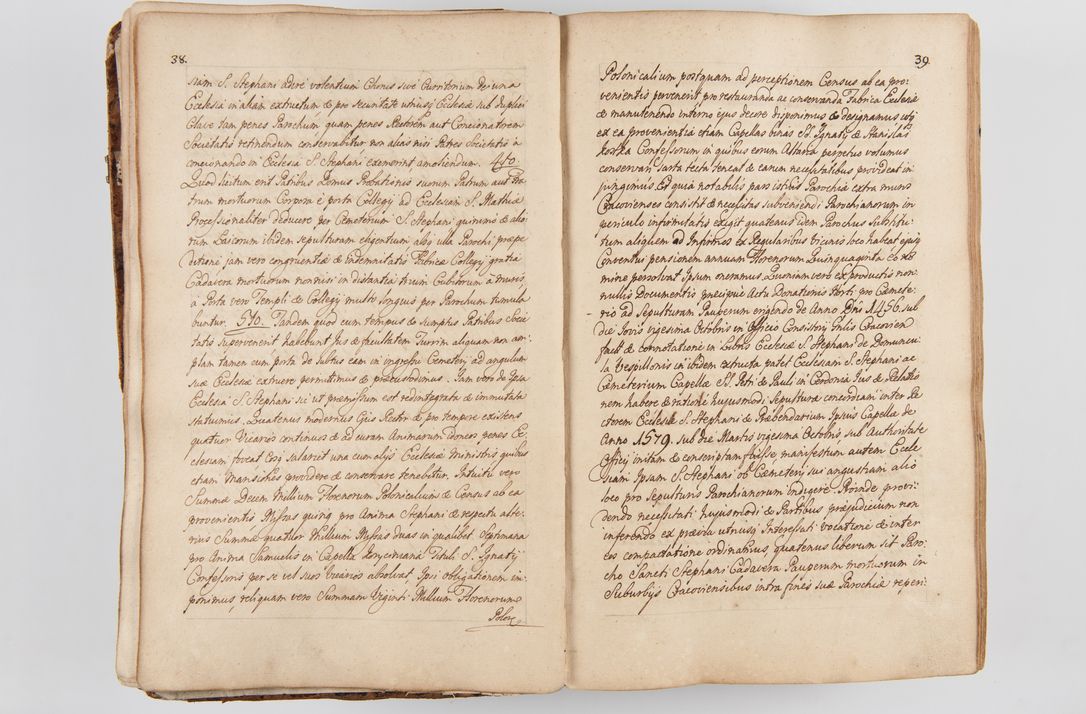 38.
siam S. Stephani adire volentium Chorus sive Curritorium de una
Ecclesia in aliam extructum & pro securitate utriusq Ecclesiæ sub duplici
Clave tam penes Parochum, quam penes Rectorem aut Concionatorem
Societatis retinendum conservabitur non alias nisi Patres Societatis a
concionando in Ecclesia S. Stephani exemerint amoliendum. 4to.
Quod licitum erit Patribus Domus Probationis suorum Patrum aut Fra
trum mortuorum Corpora è porta Collegÿ ad Ecclesiam S. Mathiæ
Processionaliter deducere per Cæmeterium S. Stephani quinimò & alio
rum Laicorum ibidem sepulturam eligentium absq ulla Parochi præpe
ditione jam vero congruentiæ & indemnitatis Fabricæ Collegÿ gratiâ
Cadavera mortuorum non nisi in distantia trium Cubitorum a muris,
a Porta vero Templi & Collegÿ multo longius per Parochum tumula
buntur. 5to. Tandem quod cum tempus & sumptus Patribus Socie
tatis supervenerit habebunt Jus & facultatem Turrim aliquam non am:
plam tamen cum porta de subtus eam in ingressu Cemeterÿ ad angulum
suæ Ecclesiæ extruere permittimus & præcustodimus. Jam vero de Ipsa
Ecclesia S. Stephani sic ut præmissum est redintegrata & immutata
statuimus. Quatenus modernus Ejus Rector & pro tempore existens
quatuor Vicarios continuos & ad curam Animarum idoneos penes Ec,
clesiam foveat Eosq salariet una cum alÿs Ecclesiæ Ministris quibus
etiam Mansiones providere & conservare tenebitur. Intuitu vero
Summæ Decem Millium Florenorum Polonicalium & Census ab ea
provenientis Missas quinq pro Anima Stephani & respectu alte,
rius Summæ quatuor Millium Missas duas in qualibet Septimana
pro Anima Samuelis in Capella Konycmanâ Tituli S. Ignatÿ
Confessoris per se vel suos Vicarios absolvat. Ipsi obligationem im
ponimus, reliquam vero Summam Viginti Millium Florenorum
Polon
39
Polonicalium postquam ad perceptionem Census ab ea pro:
venientis pervenerit pro restauranda ac conservanda Fabrica Ecclesiæ
& manutenendo interno ejus decore disponimus & designamus utq
ex ea provenientia etiam Capellas binas SS. Ignatÿ & Stanislai
Kostka Confessorum in quibus eorum Altaria perpetuo volumus
conservari Sarta tecta teneat & earum necessitatibus provideat in
jungimus. Et quia notabilis pars istius Parochiæ extra muros
Cracovienses consistit & necessitas subveniendi Parochianorum in
periculo infirmitatis exigit quatenus idem Parochus substitu:
tum aliquem ad Infirmos ex Regularibus Vicinis loco habeat ejusq
Conventui pensionem annuam Florenorum Quinquaginta eo no
mine persolvat Ipsum oneramus. Quoniam vero ex productis non:
nullis Documentis præcipuè Actu Donationis Horti pro Cæmete:
rio ad Sepulturam Pauperum erigendo de Anno Dni 1456. sub
die Jovis vigesima Octobris in Officio Consistorÿ Gnlis Cracovien
fact & connotatione in Libris Ecclesiæ S. Stephani de Domuncu
la Vespillonis in ibidem extructa patet Ecclesiam S. Stephani ac
Cæmeterium Capellæ SS. Petri & Pauli in Cerdonia Jus & Relatio
nem habere & ratione hujusmodi Sepulturæ concordiam inter Re
ctorem Ecclesiæ S. Stephani & Præbendarium Ipsius Capellæ de
Anno 1579. sub die Martis vigesima Octobris sub Authoritate
Officÿ initam & conscriptam fuisse manifestum autem Eccle
siam Ipsam S. Stephani ob Cæmeterÿ sui angustiam alio
loco pro Sepulturis Parochianorum indigere. Proinde provi:
dendo necessitati hujusmodi & Partibus præjudicium non
inferendo ex prævia utriusq Interessati vocatione & inter
eos compactatione ordinamus, quatenus liberum sit Paro:
cho Sancti Stephani Cadavera Pauperum mortuorum in
Suburbÿs Cracoviensibus intra fines suæ Parochiæ reperi: